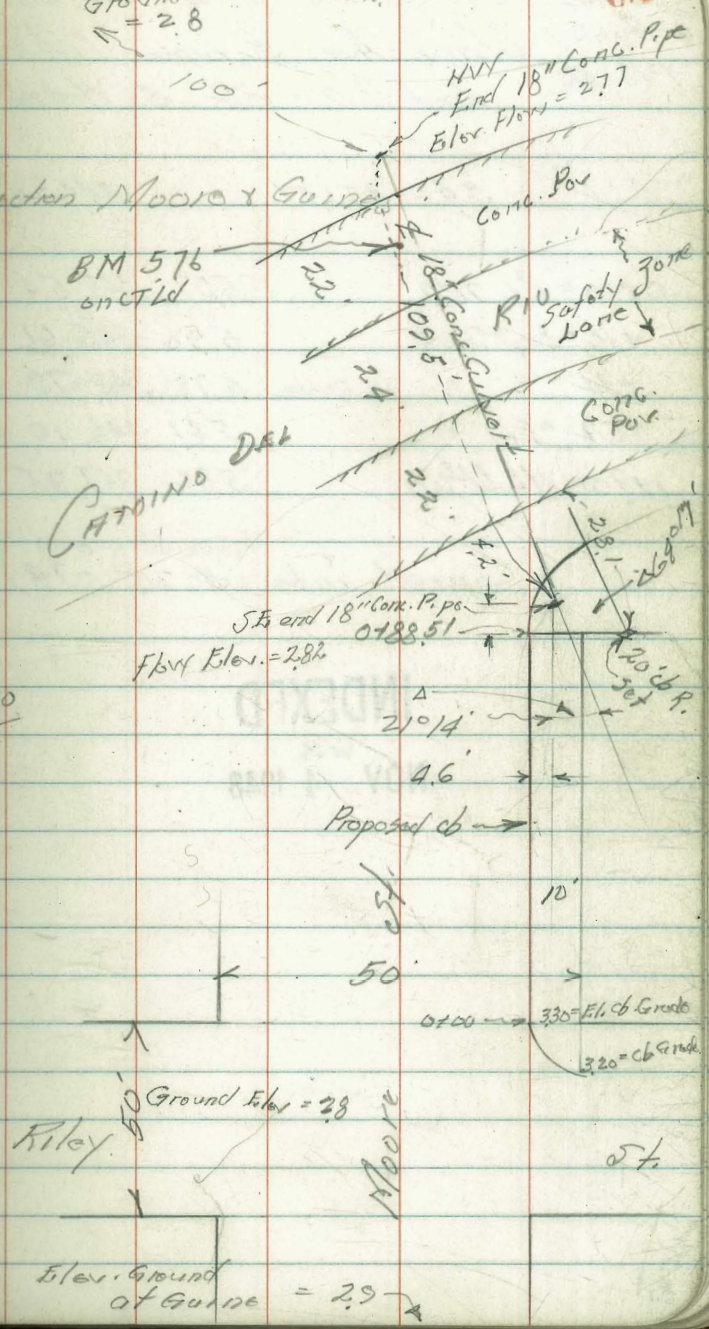 = 2.8
100'
NW
End 18" Conc. Pipe
Elev. Flow = 2.77
Moore & Guine
Conc. Pav
BM 5.76
on CT Ld
22
℄ 18" Conc Culvert
109.5'
RIO
Safety Zone
Lane
24
Conc. Pav.
CAMINO DEL
22
28.1
4.2'
SE end 18" Conc. Pipe
0+88.51
Flow Elev. = 2.82
20' cb R.
Set
Δ
21°14'
4.6'
Proposed cb
10'
50
0+00
3.30 = El. cb Grade
3.20 = cb Grade
50'
Ground Elev = 2.8
Riley
St.
Moore St
Elev. Ground
at Guine = 2.9
INDEXED
NOV 1948